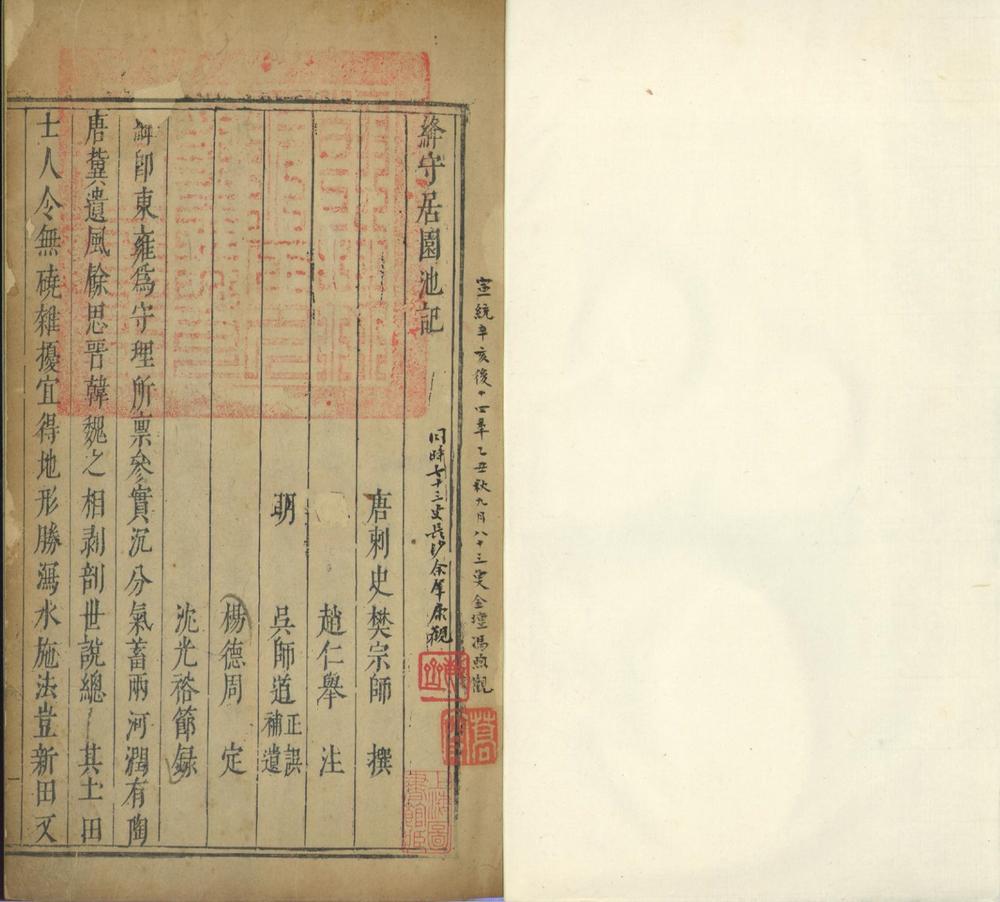 宣統辛亥後十四年乙丑秋九月八十三叟金壇馮煦觀
同時七十三叟長沙余肇康觀
絳守居園池記
唐刺史樊宗師 撰
趙仁舉 注
明 吳師道 正誤補遺
楊德周 定
沈光裕節錄
絳即東雍為守理所稟參實沉分氣蓄兩河潤有陶
唐冀遺風餘思晉韓魏之相剥剖世說總 其土田
士人令無磽雜擾宜得地形勝瀉水施法豈新田又
上海圖書館藏